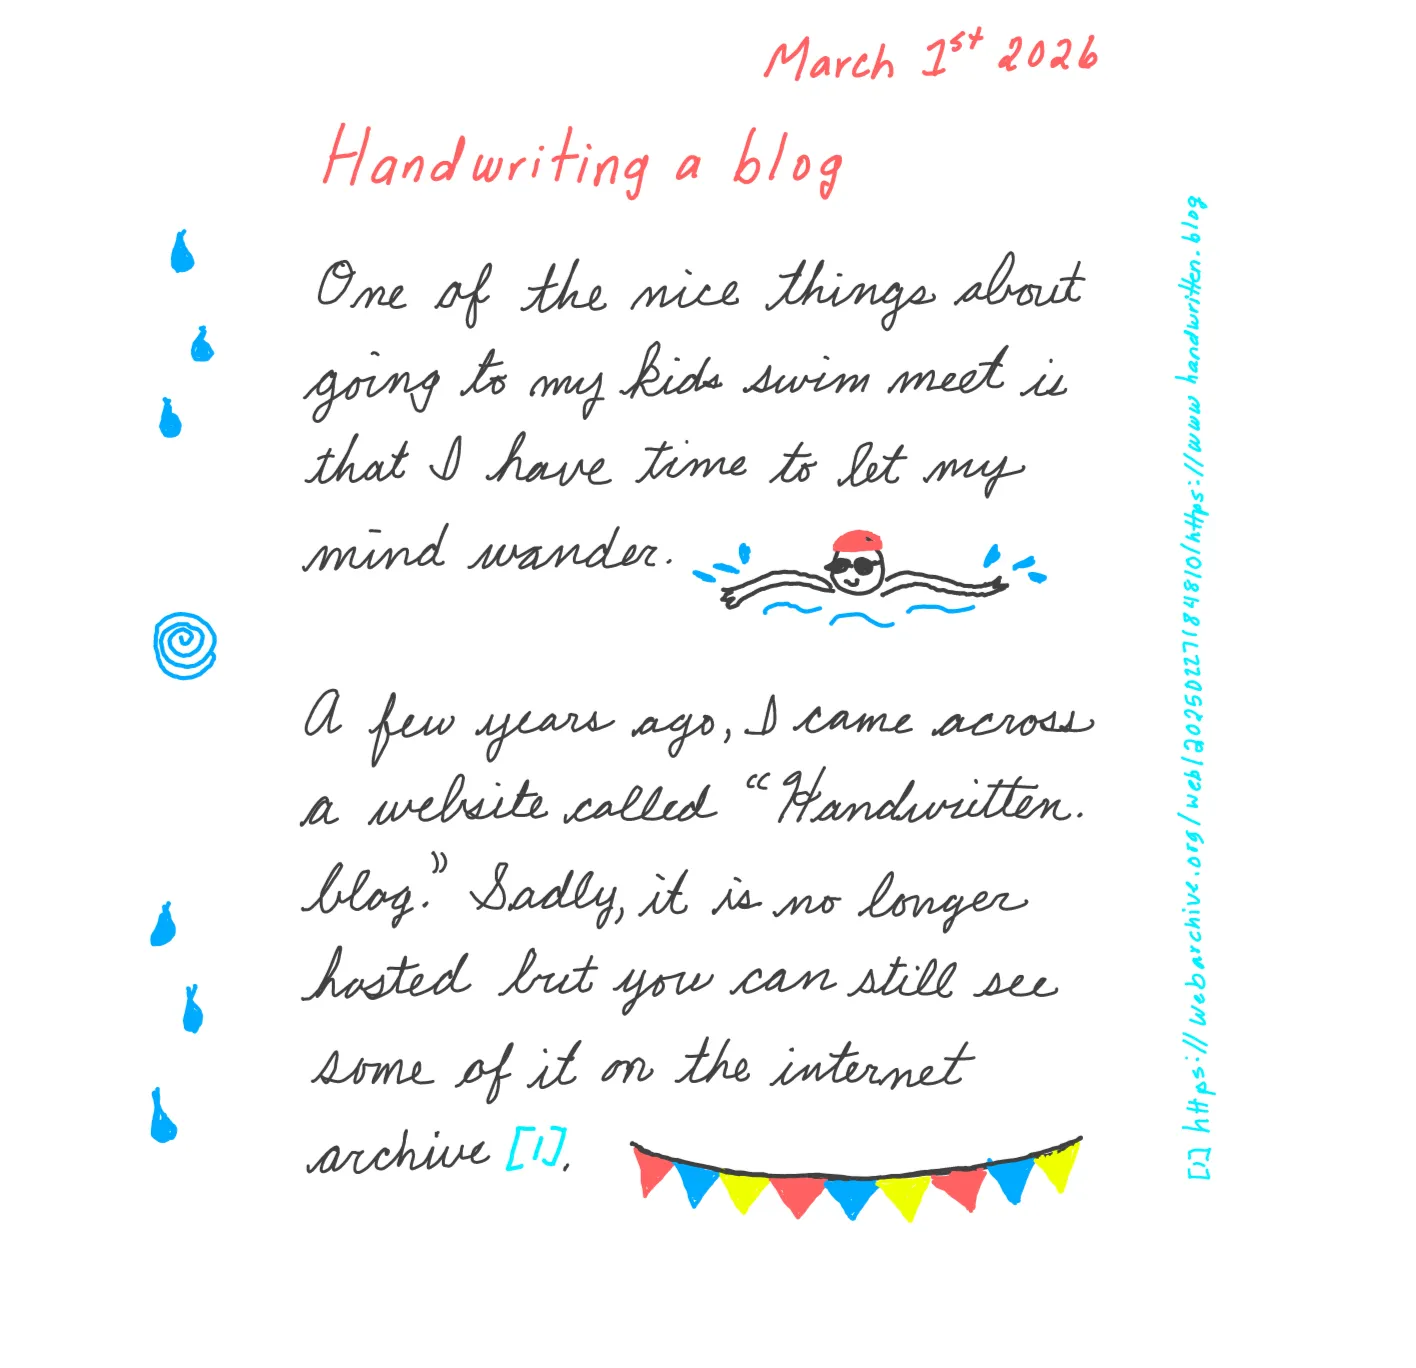 March 1st 2026
Handwriting a blog
One of the nice things about
going to my kids swim meet is
that I have time to let my
mind wander.
A few years ago, I came across
a website called "Handwritten.
blog." Sadly, it is no longer
hosted but you can still see
some of it on the internet
archive [1].
[1] https://webarchive.org/web/20250227184810/https://www handwritten.blog